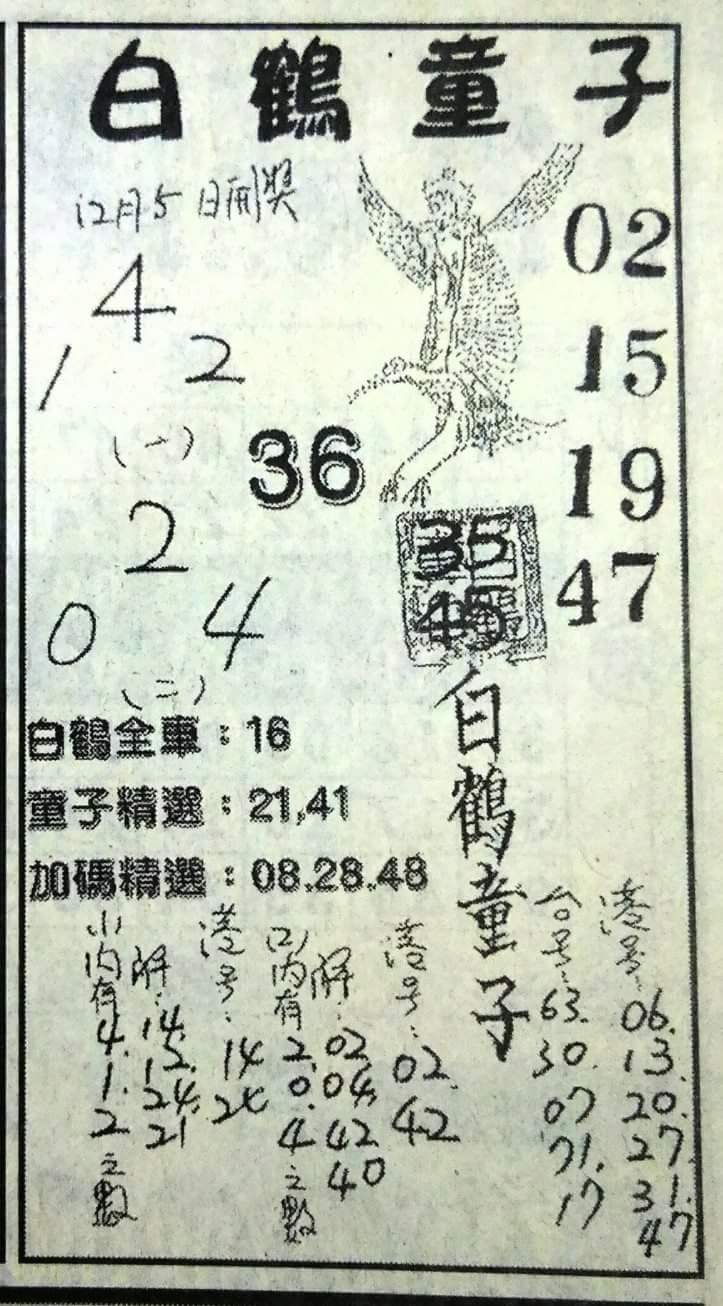 白鶴童子
12月5日開獎
4
1 2
(一)
36
2
0 4
(二)
02
15
19
47
35
45
白鶴童子
白鶴全車：16
童子精選：21,41
加碼精選：08.28.48
(1)內有4.1.2之數
解：14.12.24.21
港号：14 24
(2)內有2.0.4之數
解：02 04 42 40
港号：02 42
台号：63.30.07 71.17
港号：06.13.20.27.31.47